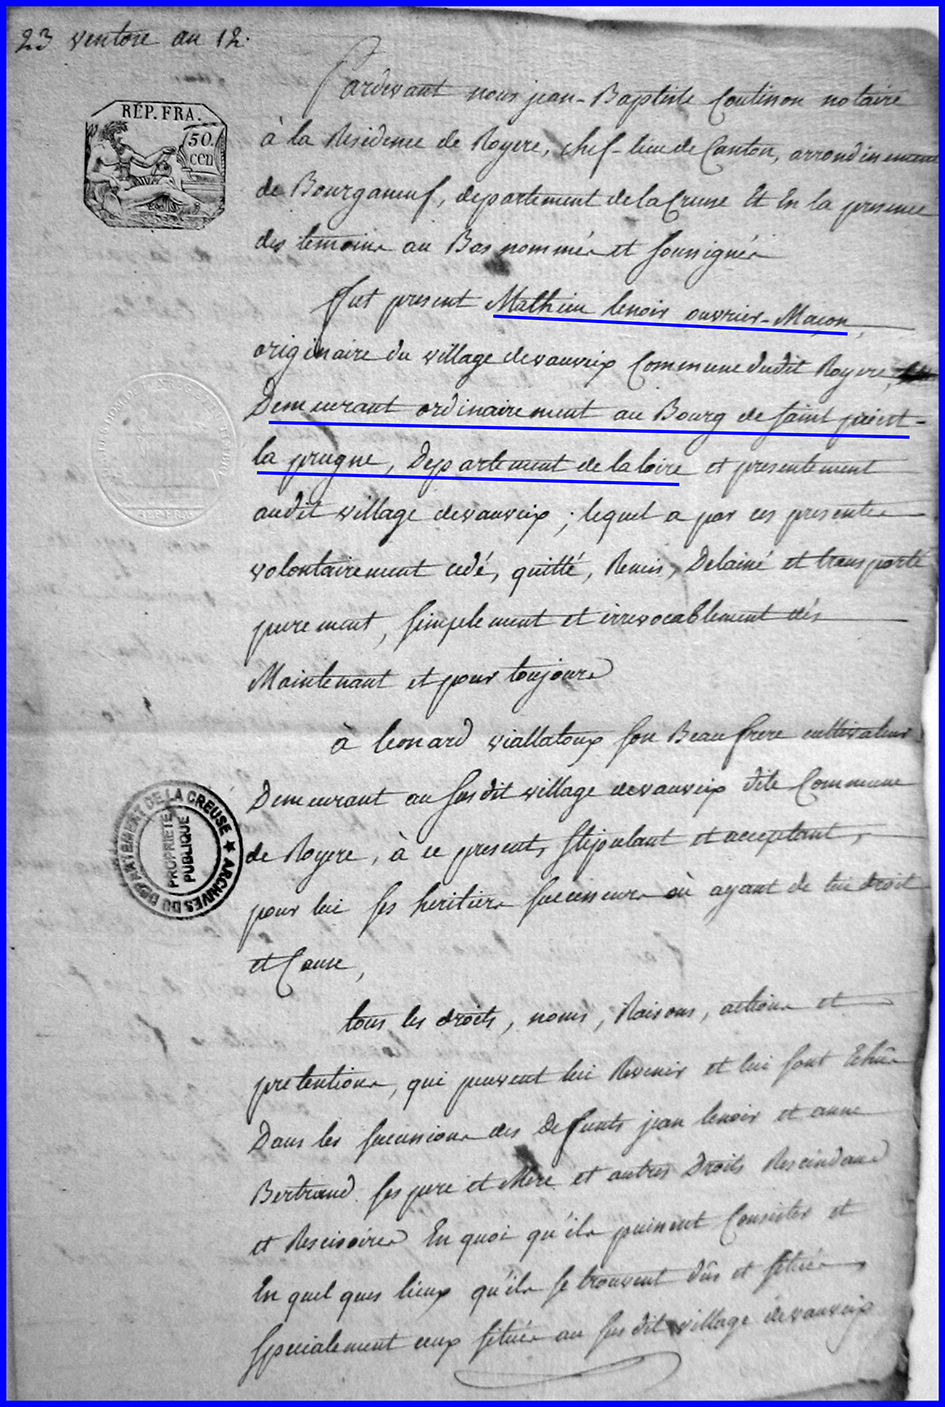 23 ventose an 12.
RÉP. FRA.
50
cen
Pardevant nous jean-Baptiste Coutisson notaire
à la Residence de Royere, chef-lieu de Canton, arrondissement
de Bourganeuf, departement de la Creuse Et En la presence
des temoins au Bas nommés et soussignés
fut present Mathieu lenoir ouvrier-Maçon,
originaire du village devauveix Commune dudit Royere,
Demeurant ordinairement au Bourg de saint priest-
la prugne, Departement de la loire et presentement
audit village devauveix ; lequel a par ces presentes
volontairement cedé, quitté, Remis, Delaissé et transporté
purement, simplement et irrevocablement dés
Maintenant et pour toujours
à leonard viallatoux son Beaufrere cultivateur
Demeurant au susdit village devauveix dite Commune
de Royere, à ce present, stipulant et acceptant,
pour lui ses heritiers successeurs où ayant de lui droit
et Cause,
tous les droits, noms, Raisons, actions et
pretentions, qui peuvent lui Revenir et lui sont Echûs
Dans les successions des defunts jean lenoir et anne
Bertrand ses pere et Mere et autres Droits Rescindans
et Rescisoires En quoi qu'ils puissent Consister et
En quelques lieux qu'ils se trouvent dûs et situés
specialement ceux situés au susdit village devauveix
ARCHIVES DU DEPARTEMENT DE LA CREUSE ★
PROPRIETE
PUBLIQUE